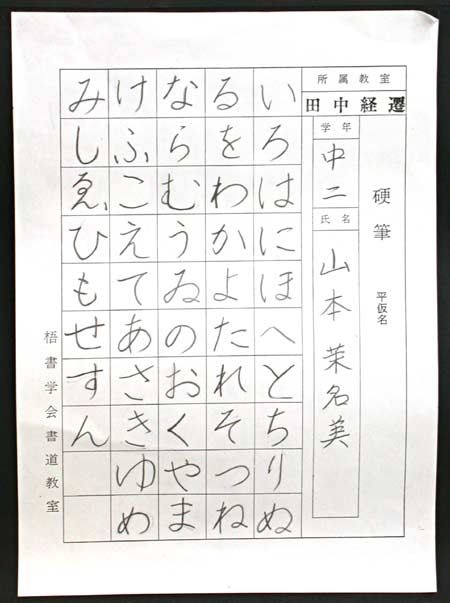 所属教室
田中経遷
硬筆 平仮名
学年
中二
氏名
山本茉名美
いろはにほへとちりぬ
るをわかよたれそつね
ならむうゐのおくやま
けふこえてあさきゆめ
みしゑひもせすん
梧書学会書道教室